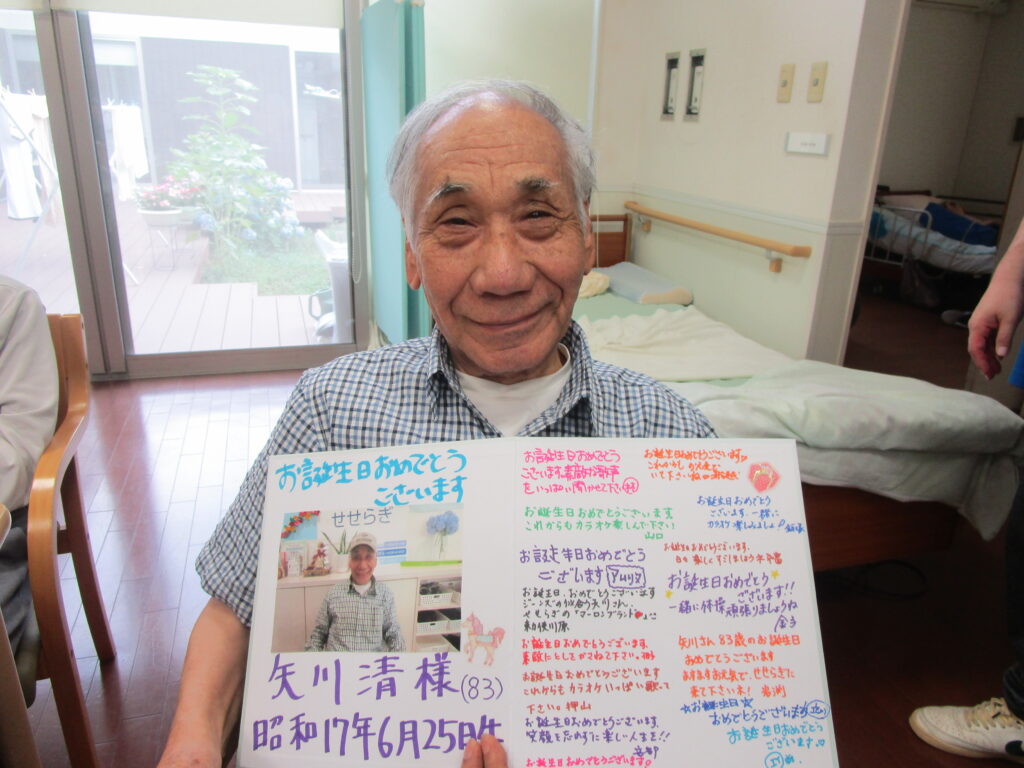 お誕生日おめでとう
ございます
せせらぎ
矢川清様(83)
昭和17年6月25日生
お誕生日おめでとう
ございます。素敵な歌声
をいっぱい聞かせて下さい
お誕生日おめでとうございます
これからもカラオケ楽しんで下さい
山口
お誕生日おめでとう
ございます
お誕生日、おめでとうございます
ジーンズの似合う矢川さん、
せせらぎの「マーロンブランド」に
お誕生日おめでとうございます。
素敵にとしをかさねて下さい。
お誕生日おめでとうございます
これからもカラオケいっぱい歌って
下さい。押山
お誕生日おめでとうございます。
笑顔を忘れずに楽しい人生を!!
お誕生日おめでとうございます
お誕生日おめでとうございます
お誕生日おめでとう
ございます。一緒に
カラオケ楽しみましょ
お誕生日おめでとうございます。
お誕生日おめでとう
ございます!!
一緒に体操頑張りましょうね
金子
矢川さん83歳のお誕生日
おめでとうございます
ますますお元気で、せせらぎに
来て下さいネ!
☆お誕生日☆
おめでとうございます
お誕生日おめでとう
ございます